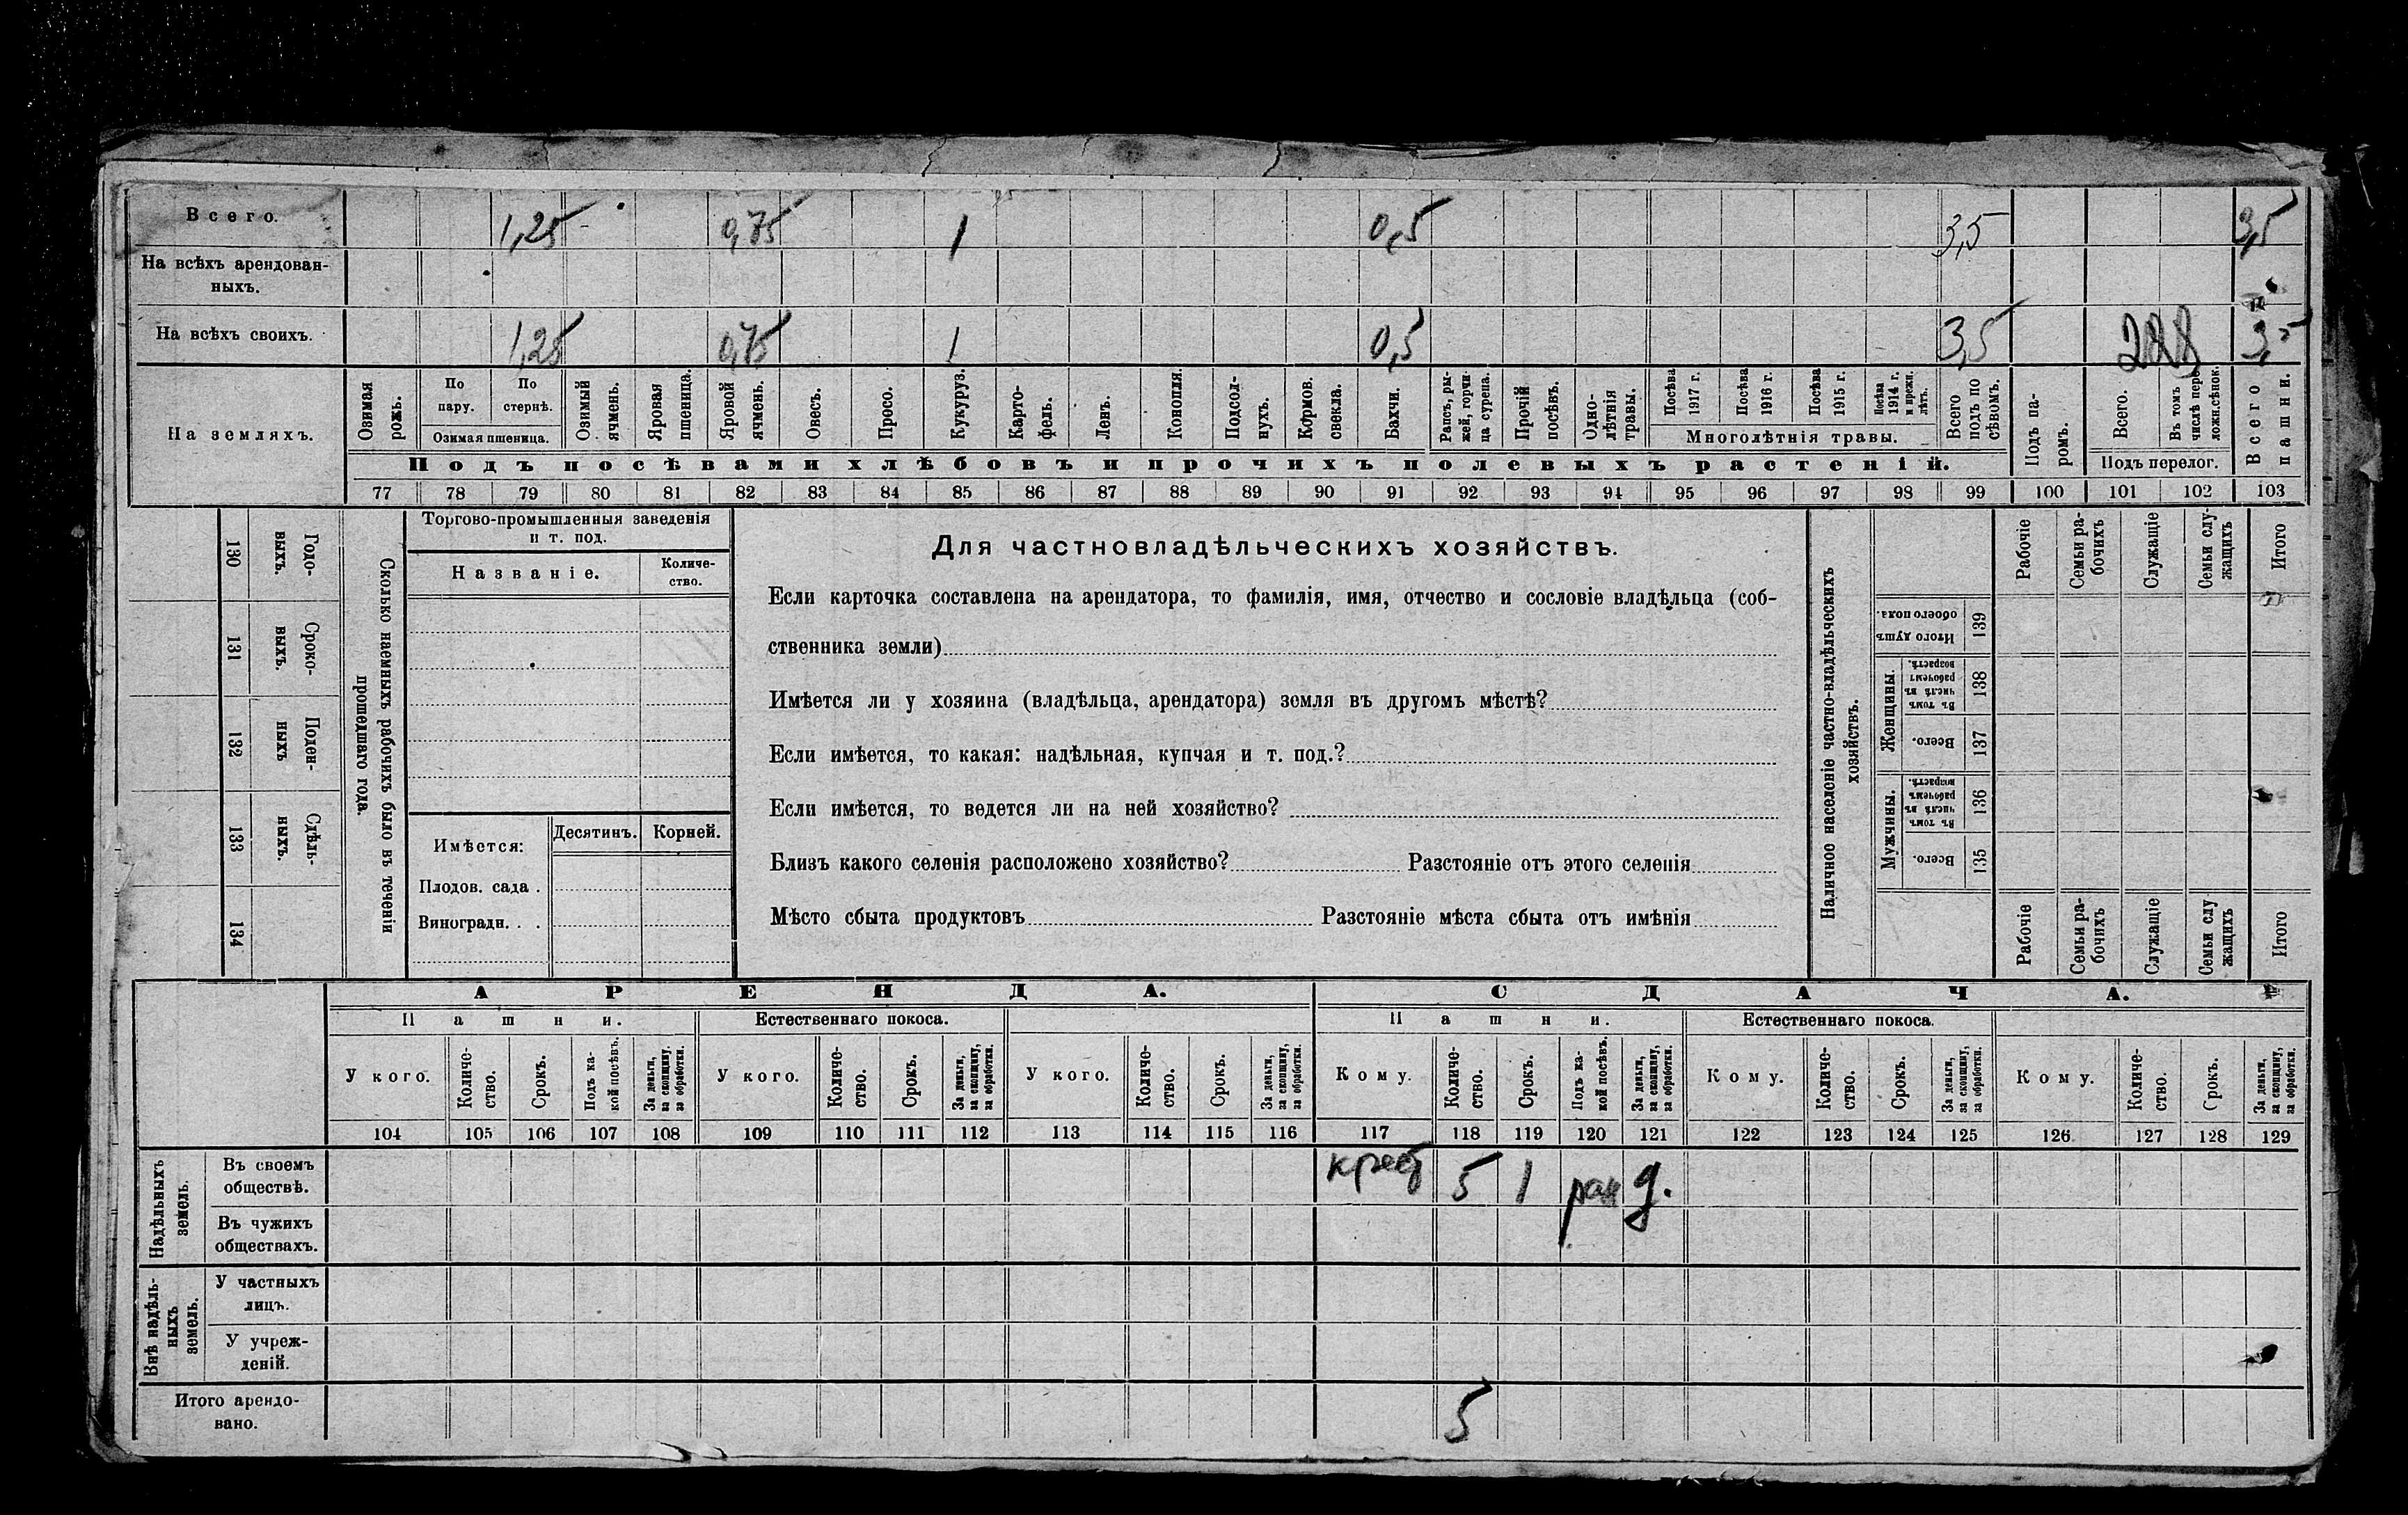 Всего. 1,25 0,75 1 0,5 3,5 3,5
На всѣхъ арендован-
ныхъ.
На всѣхъ своихъ. 1,25 0,75 1 0,5 3,5 3,5
На земляхъ.
Озимая рожь.
По пару.
По стернѣ.
Озимая пшеница.
Озимый ячмень.
Яровая пшеница.
Яровой ячмень.
Овесъ.
Просо.
Кукуруз.
Карто-
фель.
Ленъ.
Конопля.
Подсол-
нухъ.
Кормов. свекла.
Бахчи.
Рапсъ, ры-
жей, горчи-
ца сурепа.
Прочій посѣвъ.
Одно-
лѣтнія травы.
Посѣва 1917 г.
Посѣва 1916 г.
Посѣва 1915 г.
Посѣва 1914 г. и прежн. лѣтъ.
Многолѣтнія травы.
Всего подъ по-
сѣвомъ.
Подъ па-
ромъ.
Всего.
Въ томъ числѣ пере-
ложн.сѣнок.
Подъ перелог.
Всего пашни.
Подъ посѣвами хлѣбовъ и прочихъ полевыхъ растеній.
77 78 79 80 81 82 83 84 85 86 87 88 89 90 91 92 93 94 95 96 97 98 99 100 101 102 103
130 Годо-
выхъ.
131 Сроко-
выхъ.
132 Поден-
ныхъ
133 Сдѣль-
ныхъ.
134
Сколько наемныхъ рабочихъ было въ теченіи
прошедшаго года.
Торгово-промышленныя заведенія
и т. под.
Названіе.
Количе-
ство.
Имѣется:
Десятинъ.
Корней.
Плодов. сада .
Виноградн. . .
Для частновладѣльческихъ хозяйствъ.
Если карточка составлена на арендатора, то фамилія, имя, отчество и сословіе владѣльца (соб-
ственника земли)
Имѣется ли у хозяина (владѣльца, арендатора) земля въ другомъ мѣстѣ?
Если имѣется, то какая: надѣльная, купчая и т. под.?
Если имѣется, то ведется ли на ней хозяйство?
Близъ какого селенія расположено хозяйство? Разстояніе отъ этого селенія
Мѣсто сбыта продуктовъ Разстояніе мѣста сбыта отъ имѣнія
Наличное населеніе частно-владѣльческихъ
хозяйствъ.
Рабочіе
Семьи ра-
бочихъ
Служащіе
Семьи слу-
жащихъ
Итого
Итого душъ обоего пола.
139
Женщины.
Въ томъ числѣ въ рабочемъ возрастѣ.
138
Всего.
137
Мужчины.
Въ томъ числѣ въ рабочемъ возрастѣ.
136
Всего.
135
Рабочіе
Семьи ра-
бочихъ
Служащіе
Семьи слу
жащихъ
Итого
АРЕНДА. СДАЧА.
Пашни. Естественнаго покоса. Пашни. Естественнаго покоса.
У кого.
Количе-
ство.
Срокъ.
Подъ ка-
кой посѣвъ.
За деньги,
за скопщину,
за обработки.
У кого.
Количе-
ство.
Срокъ.
За деньги,
за скопщину,
за обработки.
У кого.
Количе-
ство.
Срокъ.
За деньги,
за скопщину,
за обработки.
Кому.
Количе-
ство.
Срокъ.
Подъ ка-
кой посѣвъ.
За деньги,
за скопщину,
за обработки.
Кому.
Количе-
ство.
Срокъ.
За деньги,
за скопщину,
за обработки.
Кому.
Количе-
ство.
Срокъ.
За деньги,
за скопщину,
за обработки.
104 105 106 107 108 109 110 111 112 113 114 115 116 117 118 119 120 121 122 123 124 125 126 127 128 129
Надѣльныхъ
земель.
Въ своемъ
обществѣ.
крест 5 1 д.
Въ чужихъ
обществахъ.
Внѣ надѣль-
ныхъ
земель.
У частныхъ
лицъ.
У учреж-
деній.
Итого арендо-
вано.
5